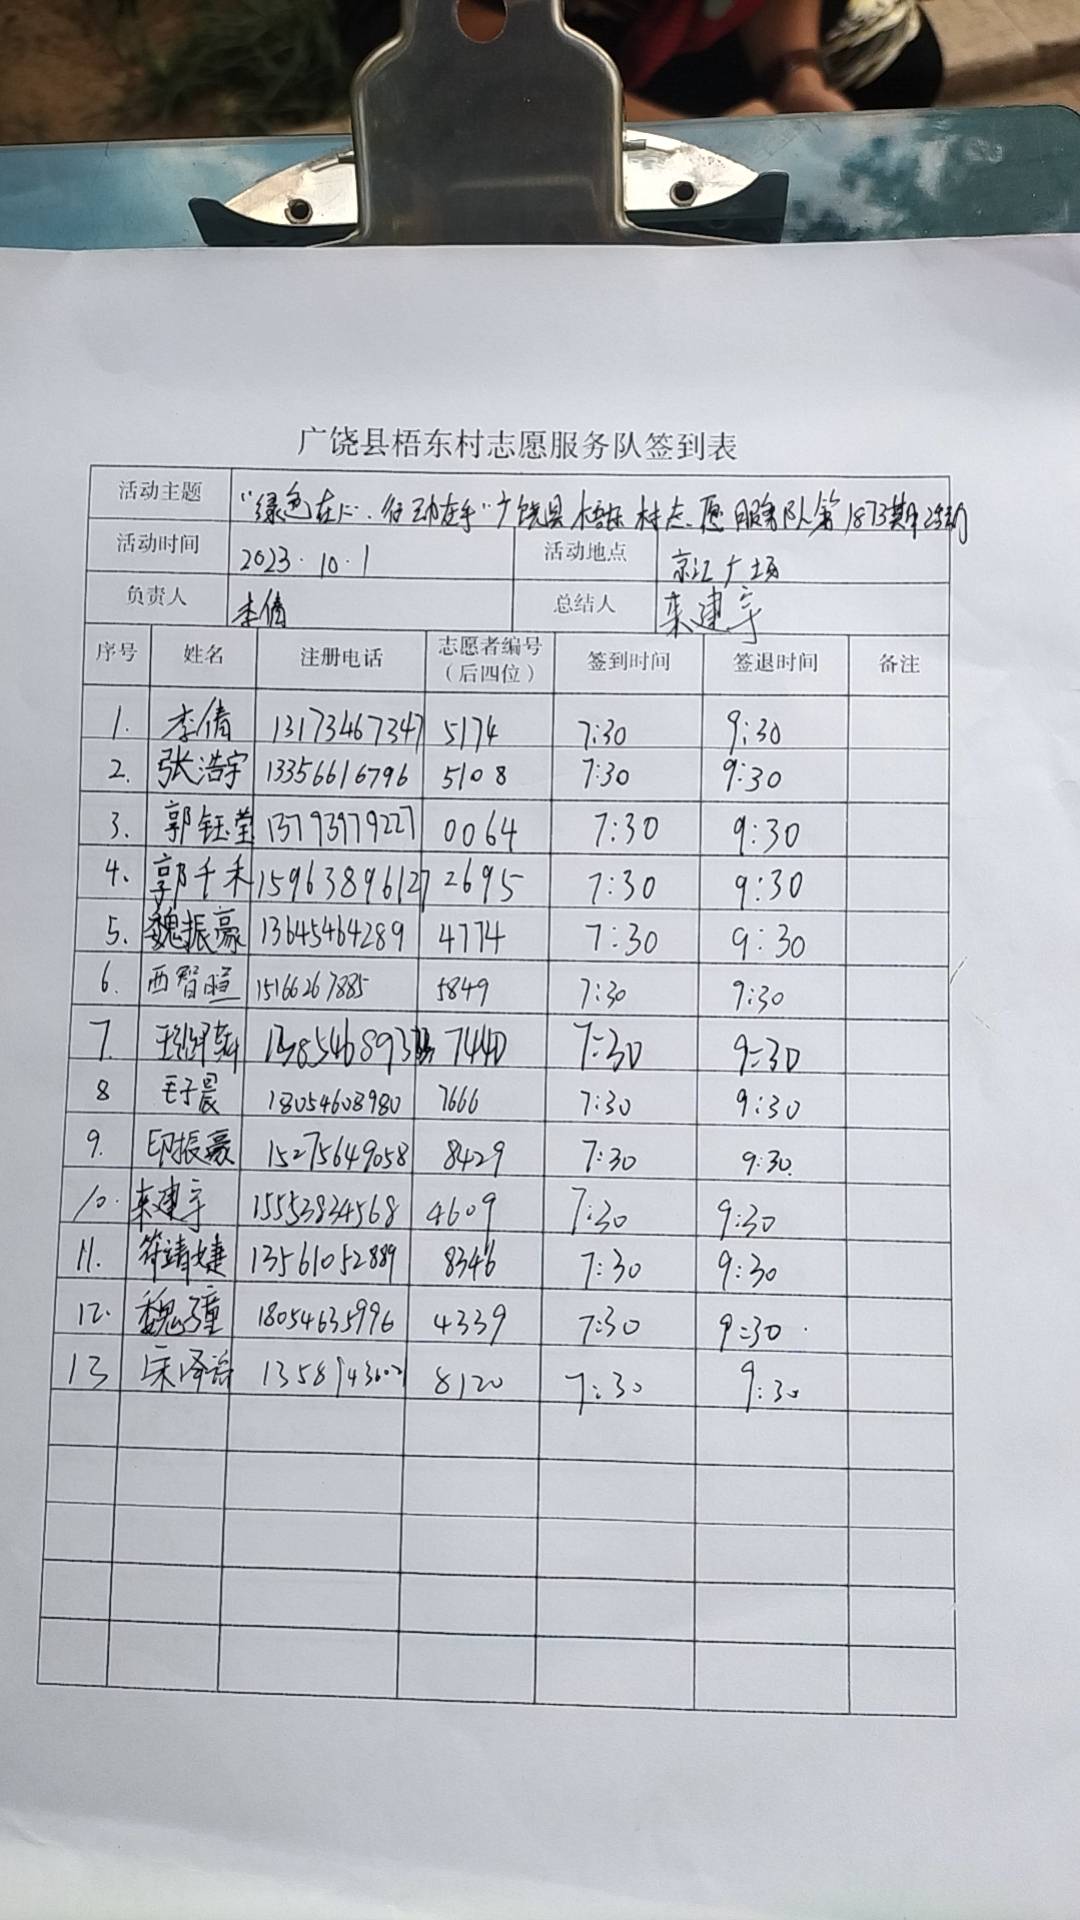 广饶县梧东村志愿服务队签到表
活动主题 "绿色在心、行动在手"广饶县梧东村志愿服务队第1873期活动
活动时间 2023.10.1 活动地点 京汇广场
负责人 李倩 总结人 栾建宇
序号 姓名 注册电话 志愿者编号（后四位） 签到时间 签退时间 备注
1. 李倩 13173467347 5174 7:30 9:30
2. 张浩宇 13356616796 5108 7:30 9:30
3. 郭钰莹 13793979227 0064 7:30 9:30
4、 郭千禾 15963896127 2695 7:30 9:30
5. 魏振豪 13645464289 4774 7:30 9:30
6. 西智暄 15166267885 5849 7:30 9:30
7. 7440 7:30 9:30
8 毛子晨 18054608980 7666 7:30 9:30
9. 印振豪 15275649058 8429 7:30 9:30
10. 栾建宇 15553834568 4609 7:30 9:30
11. 符靖婕 13561052889 8346 7:30 9:30
12. 18054635996 4339 7:30 9:30
13 8120 7:30 9:30